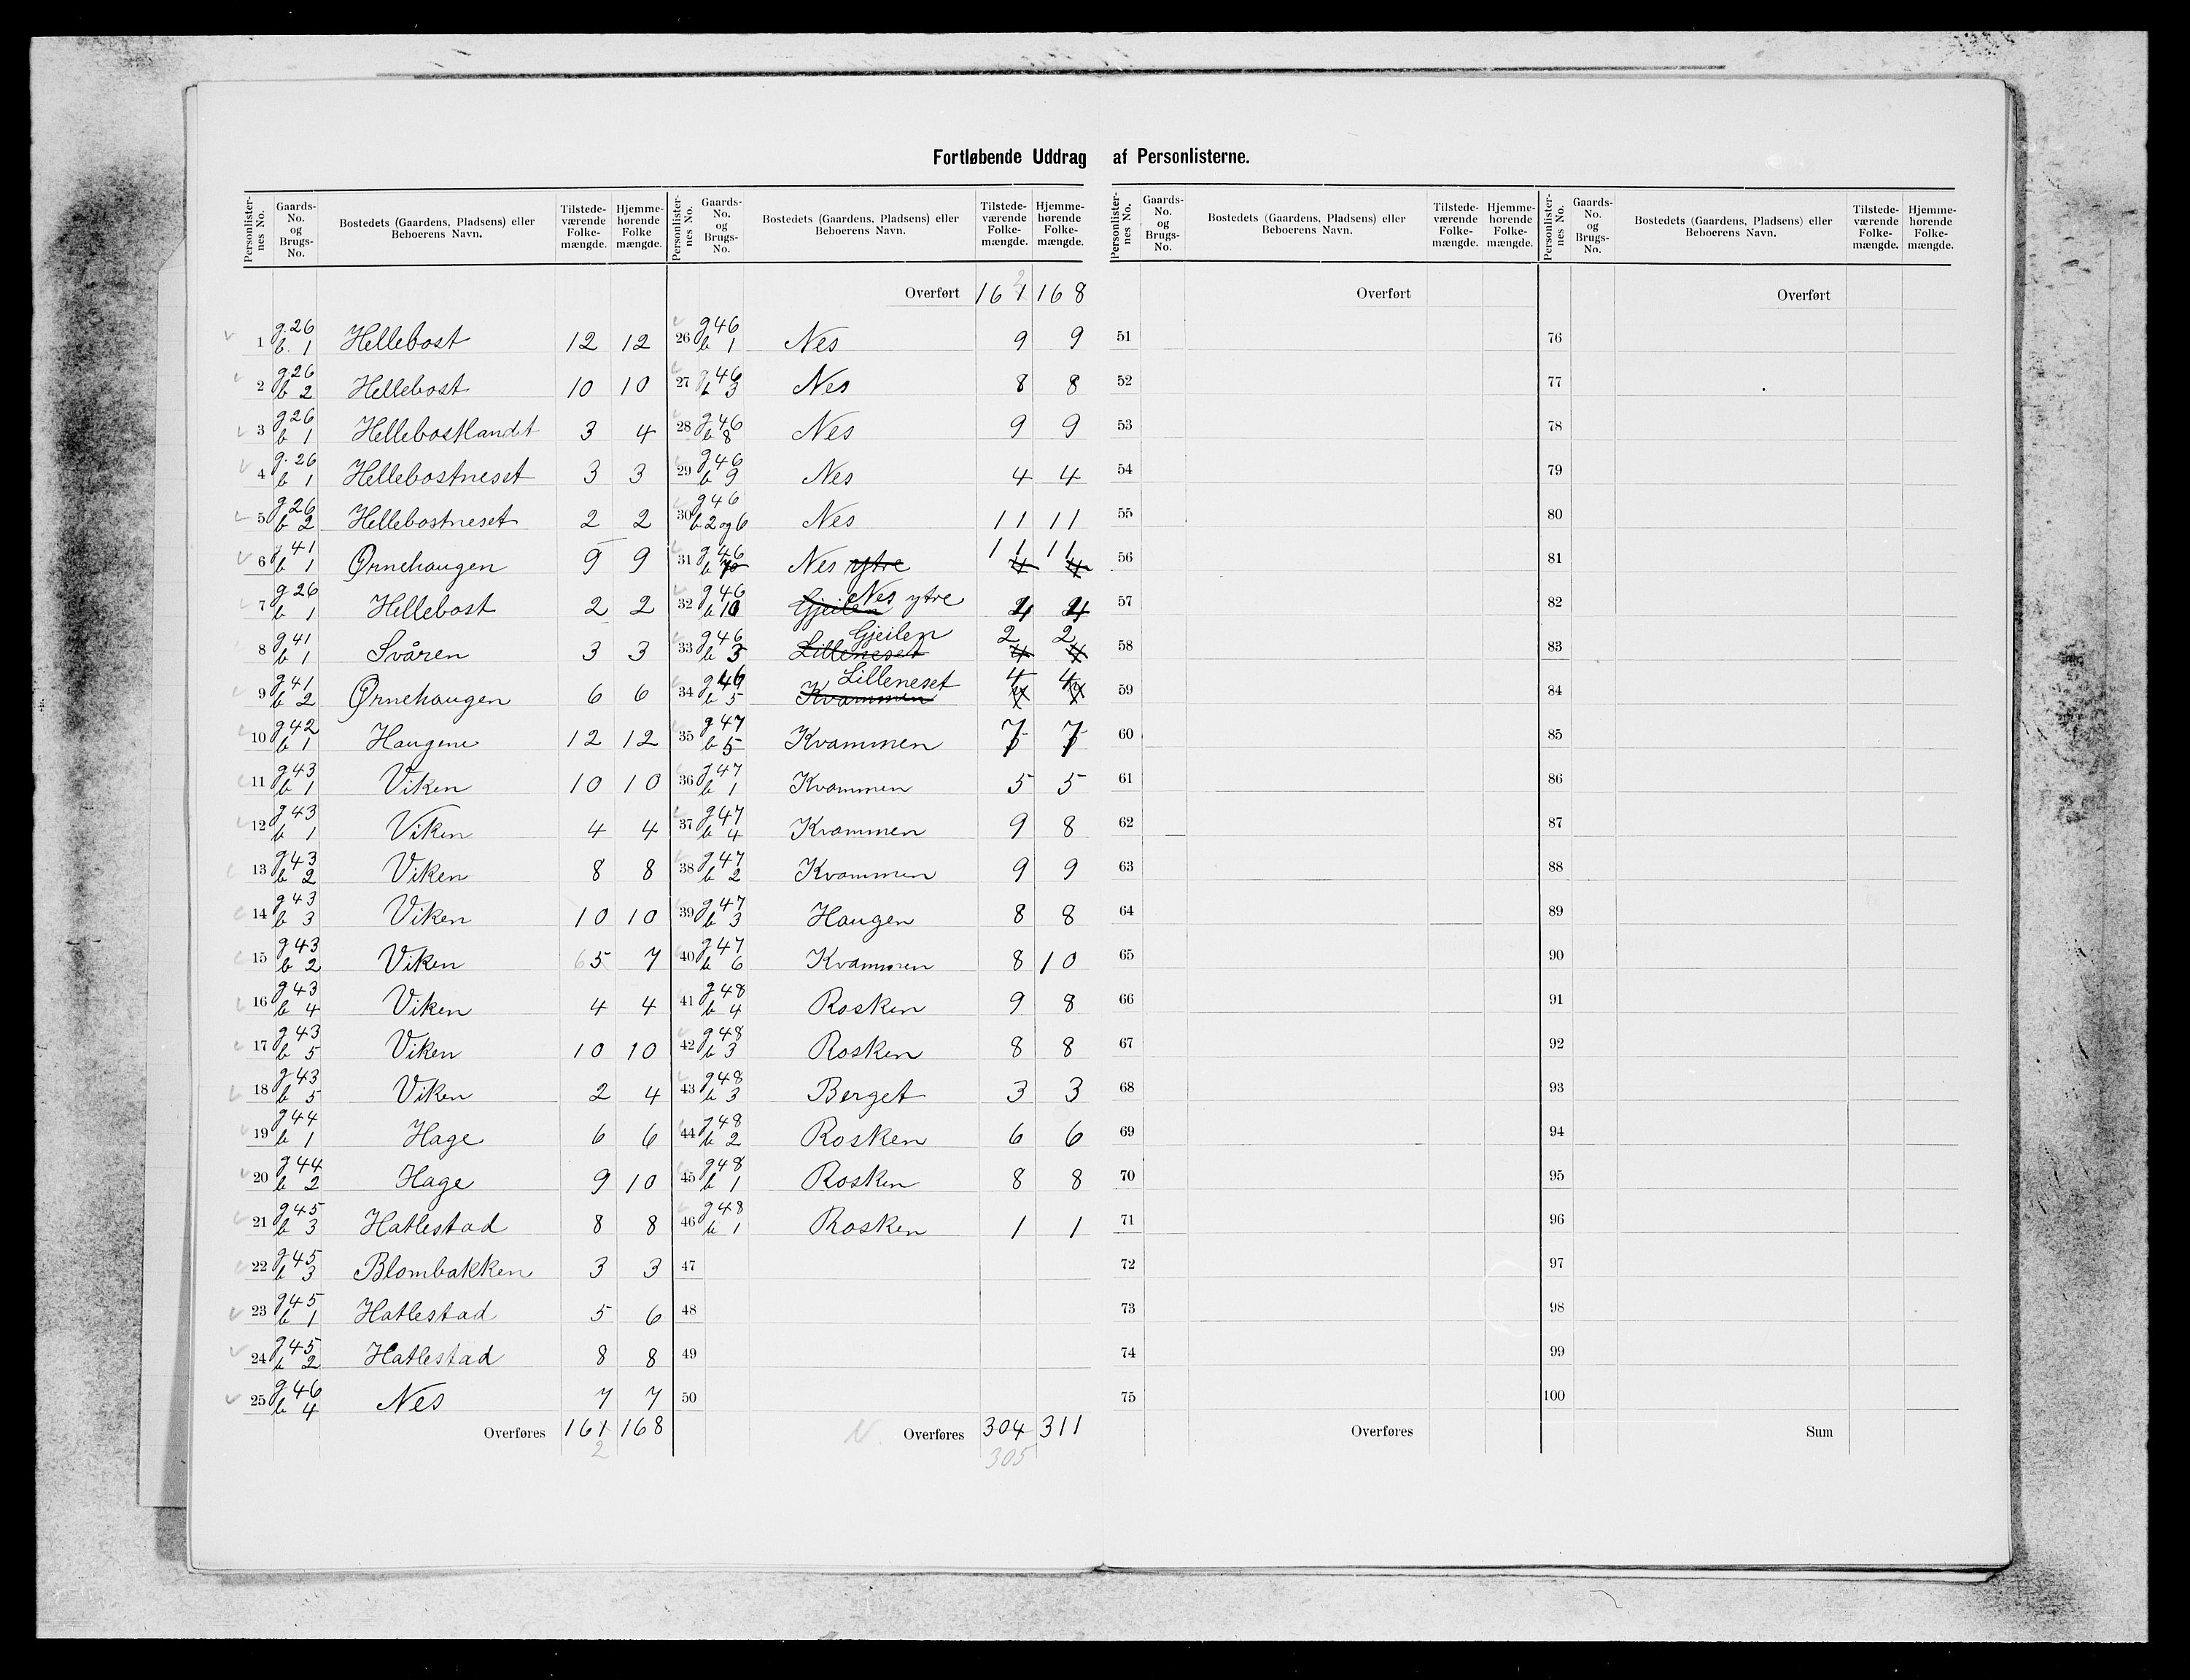 Fortløbende Uddrag af Personlisterne.
Personlister-nes No. Gaards-No. og Brugs-No. Bostedets (Gaardens, Pladsens) eller Beboerens Navn. Tilstede-værende Folke-mængde. Hjemme-hørende Folke mængde.
1 g. 26 b. 1 Hellebost 12 12
2 g 26 b 2 Hellebost 10 10
3 g 26 b 1 Hellebostlandet 3 4
4 g. 26 b 1 Hellebostneset 3 3
5 g 26 b 2 Hellebostneset 2 2
6 g 41 b 1 Ørnehaugen 9 9
7 g 26 b 1 Hellebost 2 2
8 g 41 b 1 Svåren 3 3
9 g 41 b 2 Ørnehaugen 6 6
10 g 42 b 1 Haugene 12 12
11 g 43 b 1 Viken 10 10
12 g 43 b 1 Viken 4 4
13 g 43 b 2 Viken 8 8
14 g 43 b 3 Viken 10 10
15 g 43 b 2 Viken 6 5 7
16 g 43 b 4 Viken 4 4
17 g 43 b 5 Viken 10 10
18 g 43 b 5 Viken 2 4
19 g 44 b 1 Hage 6 6
20 g 44 b 2 Hage 9 10
21 g 45 b 3 Hatlestad 8 8
22 g 45 b 3 Blombakken 3 3
23 g 45 b 1 Hatlestad 5 6
24 g 45 b 2 Hatlestad 8 8
25 g 46 b 4 Nes 7 7
Overføres 161 168
2
Personlister-nes No. Gaards-No. og Brugs-No. Bostedets (Gaardens, Pladsens) eller Beboerens Navn. Tilstede-værende Folke-mængde. Hjemme-hørende Folke-mængde.
2
Overført 161 168
26 g 46 b 1 Nes 9 9
27 g 46 b 3 Nes 8 8
28 g 46 b 8 Nes 9 9
29 g 46 b 9 Nes 4 4
30 g 46 b 2 og 6 Nes 11 11
31 g 46 b 7 Nes ytre 11 11 4 4
32 g 46 b 10 Gjeilen Nes ytre 4 4
33 g 46 b 3 Lilleneset Gjeilen 2 2 4 4
34 g 46 b 5 Kvammen Lilleneset 4 4
35 g 47 b 5 Kvammen 7 7
36 g 47 b 1 Kvammen 5 5
37 g 47 b 4 Kvammen 9 8
38 g 47 b 2 Kvammen 9 9
39 g 47 b 3 Haugen 8 8
40 g 47 b 6 Kvammen 8 10
41 g 48 b 4 Rosken 9 8
42 g 48 b 3 Rosken 8 8
43 g 48 b 3 Berget 3 3
44 g 48 b 2 Rosken 6 6
45 g 48 b 1 Rosken 8 8
46 g 48 b 1 Rosken 1 1
47
48
49
50
Overføres 304 311
305
Personlister-nes No. Gaards-No. og Brugs-No. Bostedets (Gaardens, Pladsens) eller Beboerens Navn. Tilstede-værende Folke-mængde. Hjemme-hørende Folke-mængde.
Overført
51
52
53
54
55
56
57
58
59
60
61
62
63
64
65
66
67
68
69
70
71
72
73
74
75
Overføres
Personlister-nes No. Gaards-No. og Brugs-No. Bostedets (Gaardens, Pladsens) eller Beboerens Navn. Tilstede-værende Folke-mængde. Hjemme-hørende Folke-mængde.
Overført
76
77
78
79
80
81
82
83
84
85
86
87
88
89
90
91
92
93
94
95
96
97
98
99
100
Sum